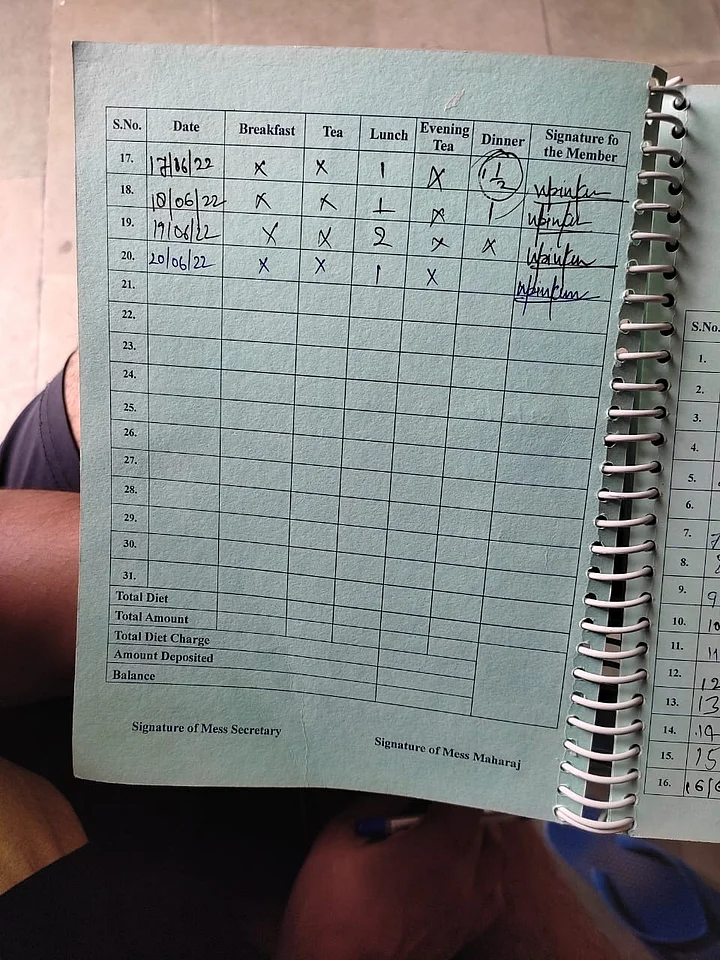 S.No. Date Breakfast Tea Lunch Evening Tea Dinner Signature fo the Member
17. 17/06/22 x x 1 x 1 1/2
18. 18/06/22 x x 1 x 1
19. 19/06/22 x x 2 x x
20. 20/06/22 x x 1 x
21.
22.
23.
24.
25.
26.
27.
28.
29.
30.
31.
Total Diet
Total Amount
Total Diet Charge
Amount Deposited
Balance
Signature of Mess Secretary
Signature of Mess Maharaj
S.No.
1.
2.
3.
4.
5.
6.
7. 7
8. 8
9. 9
10. 10
11. 11
12. 12
13. 13
14. 14
15. 15
16. 16/